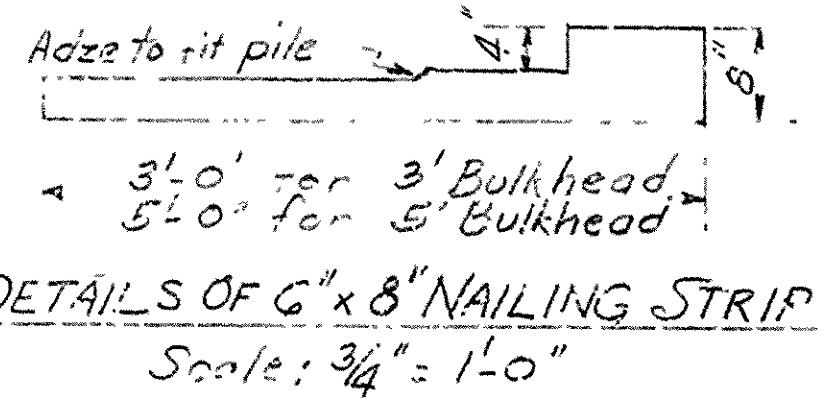 Adze to fit pile
4"
8"
3'-0" for 3' Bulkhead
5'-0" for 5' Bulkhead
DETAILS OF 6" x 8" NAILING STRIP
Scale: 3/4" = 1'-0"